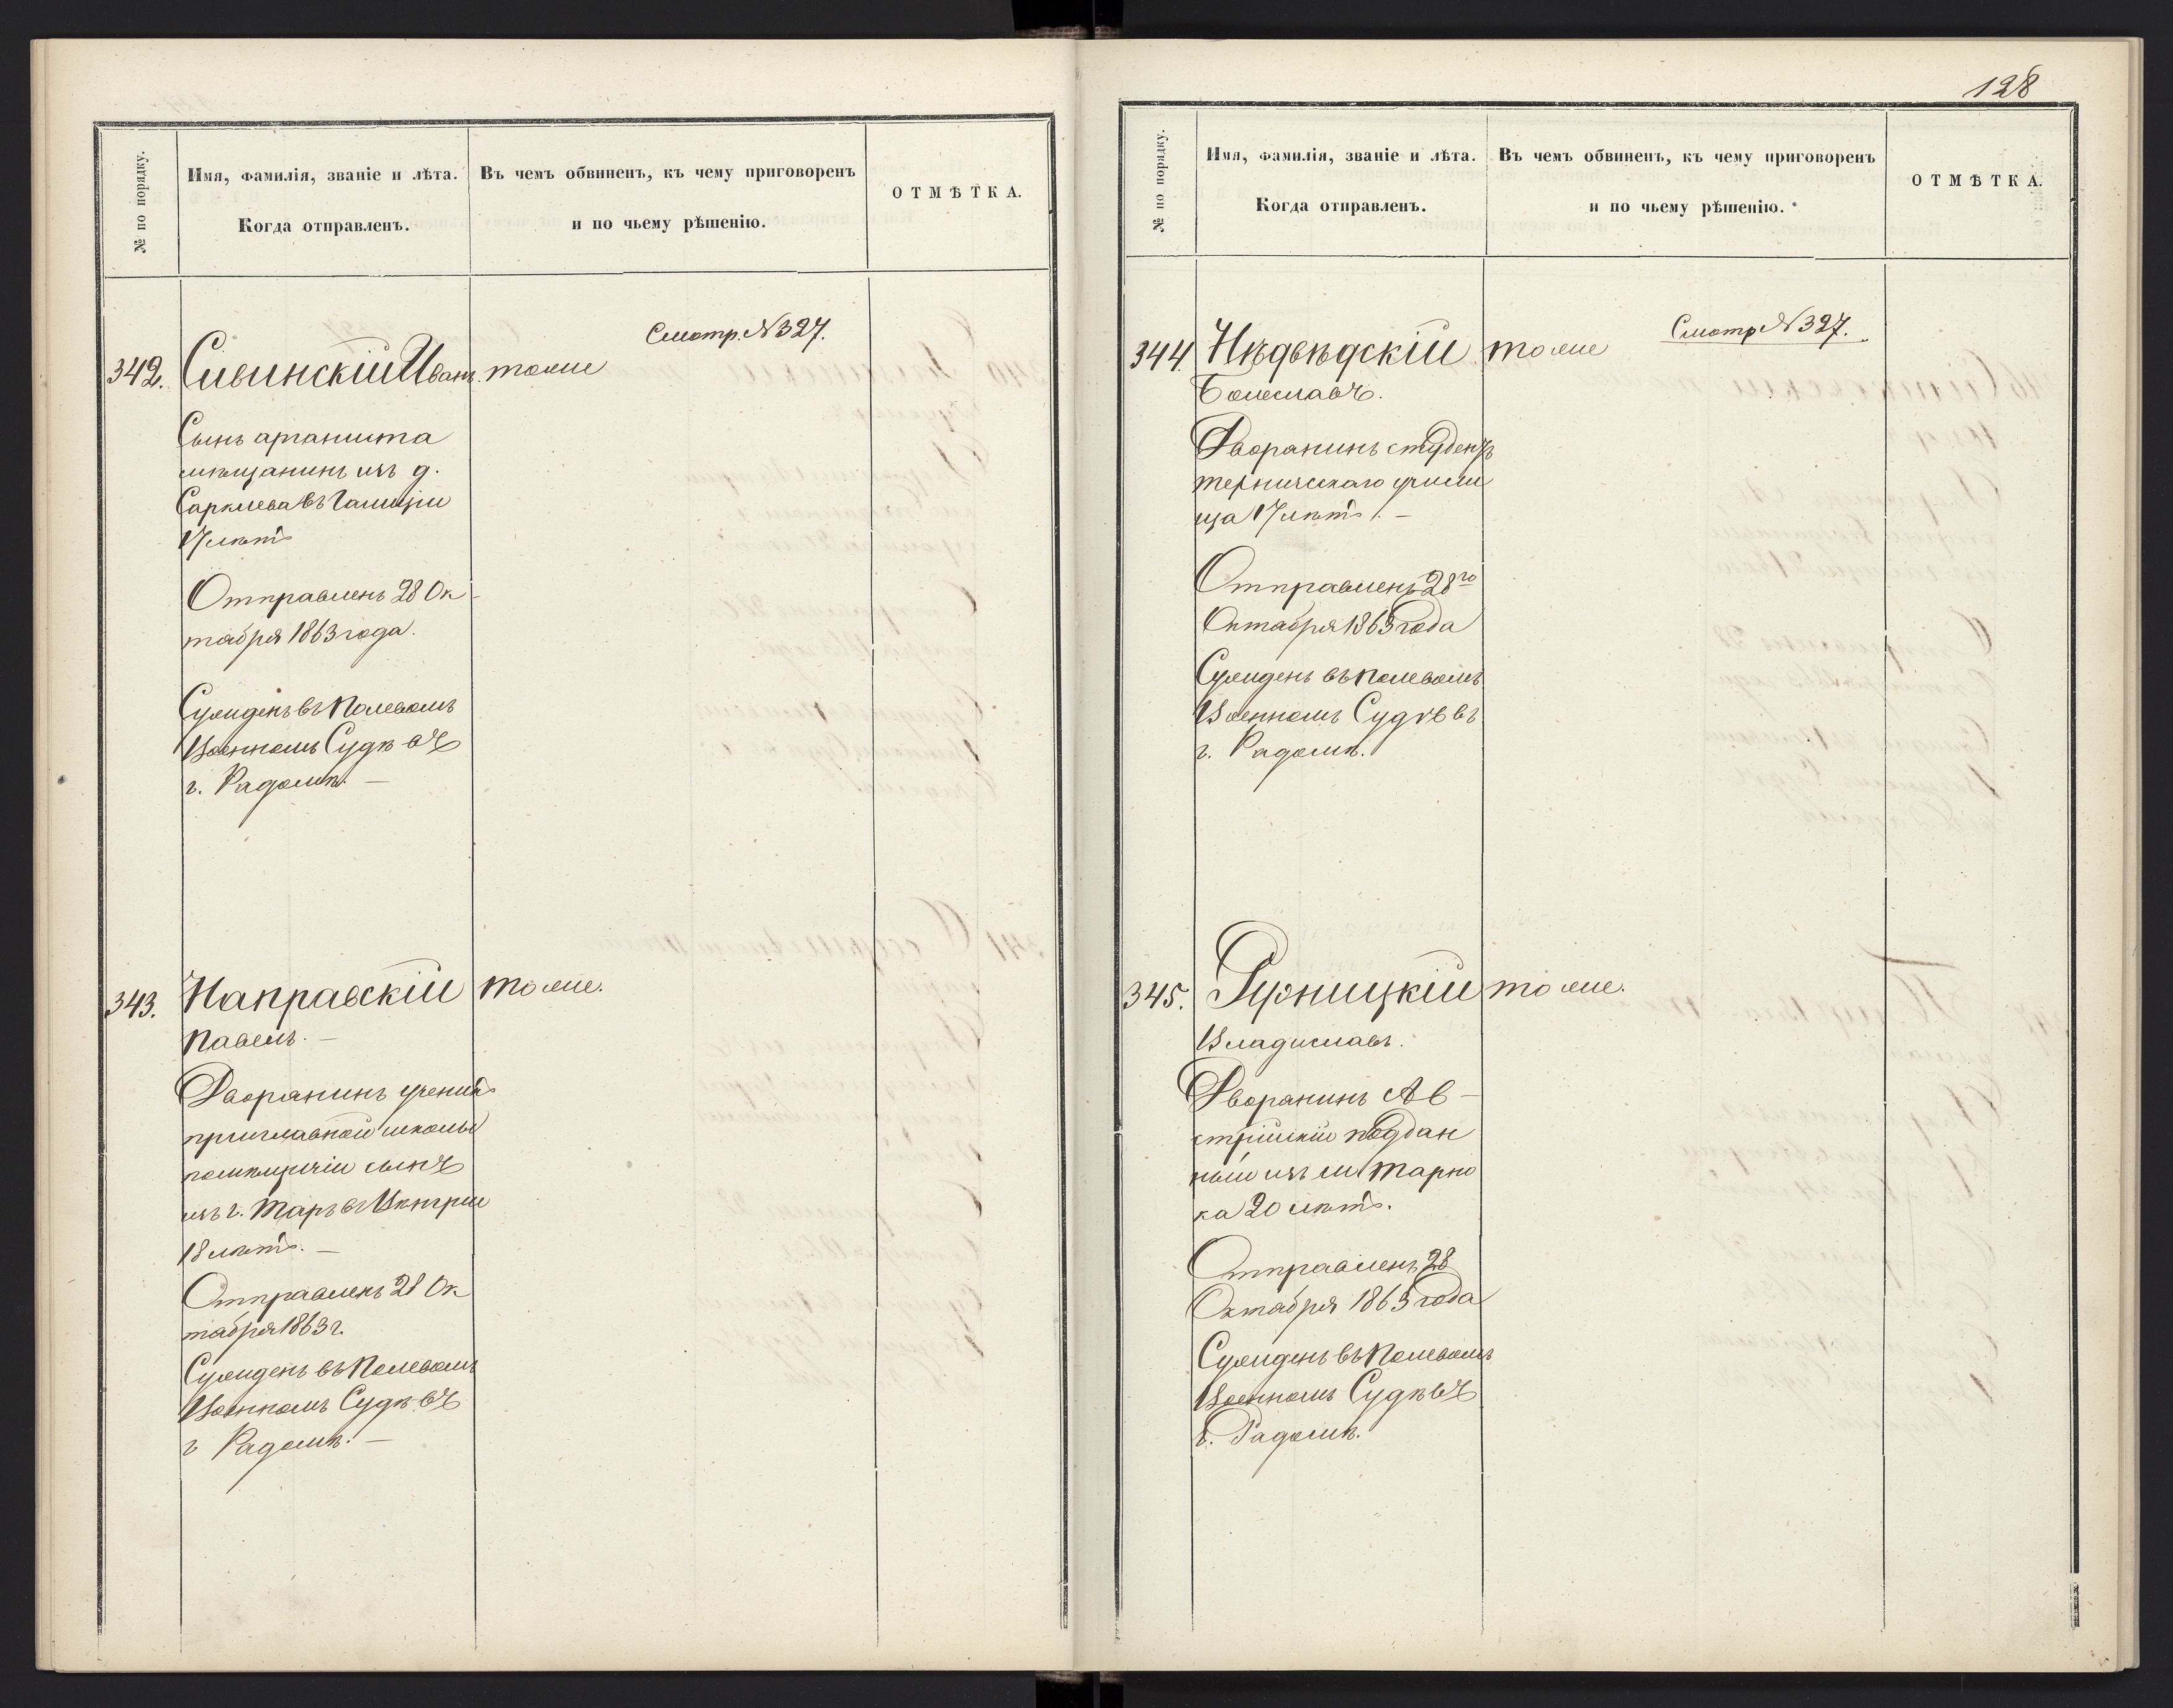 128
№ по порядку.
Имя, фамилія, званіе и лѣта.
Когда отправленъ.
Въ чемъ обвиненъ, къ чему приговоренъ
и по чьему рѣшенію.
ОТМѢТКА.
Смотр. № 327.
342. Сивинскій Иванъ. тоже
Сынъ арганиста
мѣщанинъ изъ д.
Саркнева въ Галиціи
17 лѣтъ
Отправленъ 28 Ок-
тября 1863 года.
Сужиденъ въ Полевомъ
Военномъ Судѣ въ
г. Радомѣ. —
343. Направскій тоже.
Павелъ. —
Дворянинъ ученикъ
приглавной школы
помѣщичіи сынъ
изъ г. Маръ въ Венгріи
18 лѣтъ. —
Отправленъ 28 Ок
тября 1863 г.
Сужиденъ въ Полевомъ
Военномъ Судѣ въ
г Радомѣ. —
№ по порядку.
Имя, фамилія, званіе и лѣта.
Когда отправленъ.
Въ чемъ обвиненъ, къ чему приговоренъ
и по чьему рѣшенію.
ОТМѢТКА.
Смотр № 327.
344. Нѣдвѣдскій тоже
Болеславъ.
Дворанинъ студентъ
техническаго учили
ща 17 лѣтъ. —
Отправленъ 28го
Октабря 1863 года
Сужиденъ въ Полевомъ
Военномъ Судѣ въ
г. Радомѣ.
345. Рузницкій тоже.
Владиславъ.
Дворанинъ Ав-
стрійскій поддан
ный изъ м Тарно
ка 20 лѣтъ.
Отправленъ 28
Октября 1863 года
Сужиденъ въ Полевомъ
Военномъ Судѣ въ
г. Радомѣ.